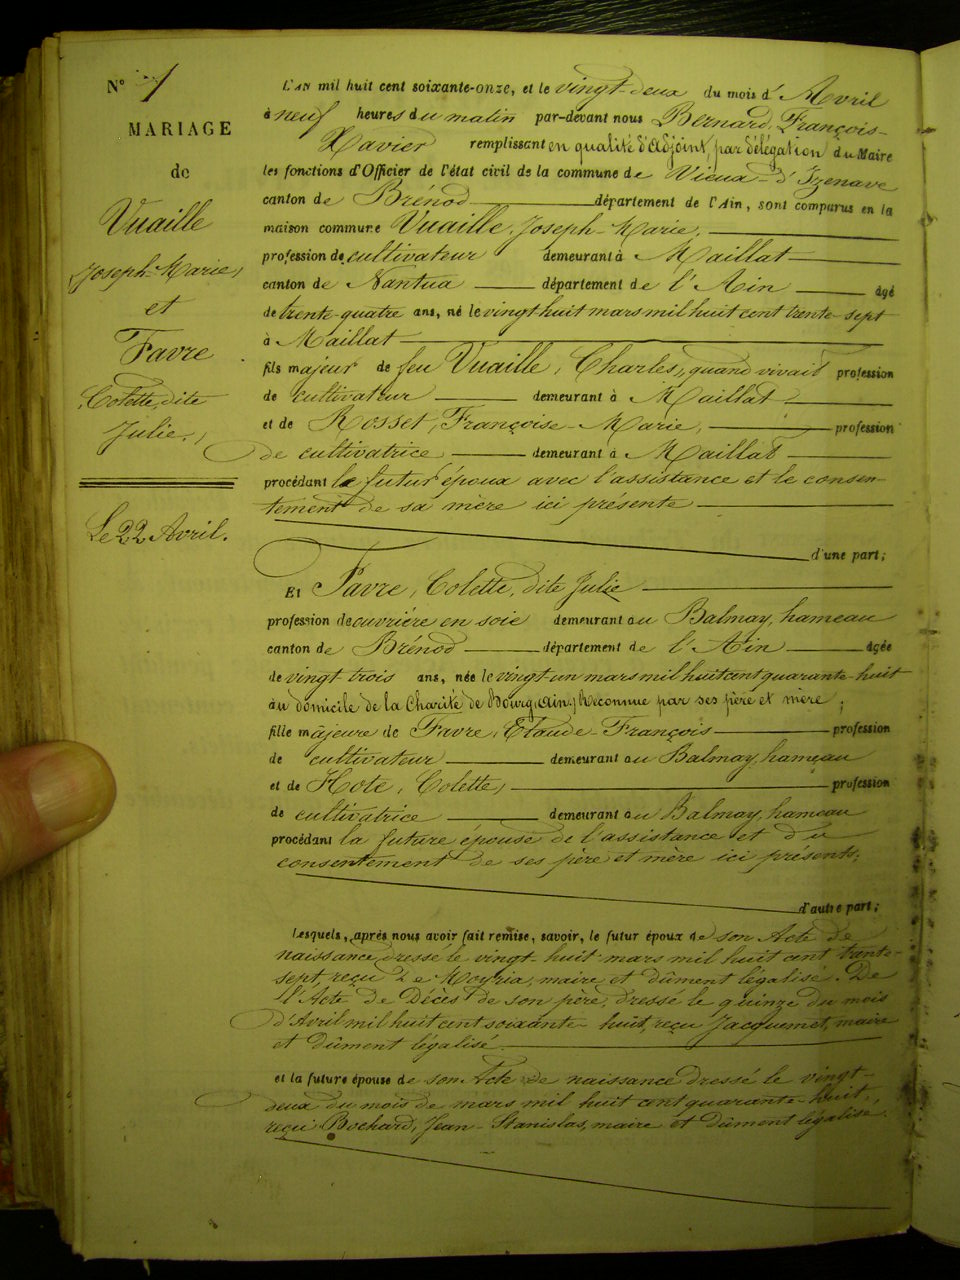 N° 1
MARIAGE
de
Vuaille
Joseph-Marie,
et
Favre
Colette, dite
Julie.,
Le 22 Avril.
L'AN mil huit cent soixante-onze, et le vingt-deux du mois d'Avril
à neuf heures du matin par-devant nous Bernard, François-
Xavier remplissant en qualité d'Adjoint, par délégation du Maire
les fonctions d'Officier de l'état civil de la commune de Vieux-d'Izenave
canton de Brénod département de l'Ain, sont comparus en la
maison commune Vuaille, Joseph-Marie,
profession de cultivateur demeurant à Maillat
canton de Nantua département de l'Ain âgé
de trente-quatre ans, né le vingt huit mars mil huit cent trente-sept
à Maillat
fils majeur de feu Vuaille, Charles, quand vivait profession
de cultivateur demeurant à Maillat
et de Rosset, Françoise-Marie, profession
de cultivatrice demeurant à Maillat
procédant le futur époux avec l'assistance et le consen-
tement de sa mère ici présente
d'une part;
Et Favre, Colette, dite Julie
profession de ouvrière en soie demeurant au Balmay, hameau
canton de Brénod département de l'Ain âgée
de vingt trois ans, née le vingt un mars mil huit cent quarante-huit
au domicile de la Charité de Bourg (Ain.) Reconnue par ses père et mère;
fille majeure de Favre, Claude-François profession
de cultivateur demeurant au Balmay, hameau
et de Hote, Colette, profession
de cultivatrice demeurant au Balmay, hameau
procédant la future épouse de l'assistance et du
consentement de ses père et mère ici présents.
d'autre part;
Lesquels, après nous avoir fait remise, savoir, le futur époux de son Acte de
naissance dressé le vingt-huit mars mil huit cent trente-
sept, reçu De Moyria, maire et dûment légalisé. De
l'Acte de Décès de son père, dressé le quinze du mois
d'Avril mil huit cent soixante-huit, reçu Jacquemet, maire
et dûment légalisé
et la future épouse de son Acte de naissance dressé le vingt-
deux du mois de mars mil huit cent quarante-huit,
reçu Bochard, Jean-Stanislas, maire et dûment légalisé.